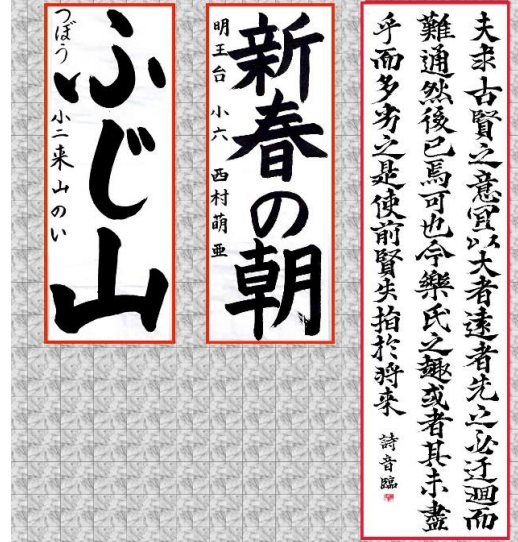 夫求古賢之意冝以大者遠者先之必迂迴而
難通然後已焉可也今樂氏之趣或者其未盡
乎而多劣之是使前賢失指於将来 詩音臨
新春の朝
明王台 小六 西村萌亜
ふじ山
つぼう 小二来山のい